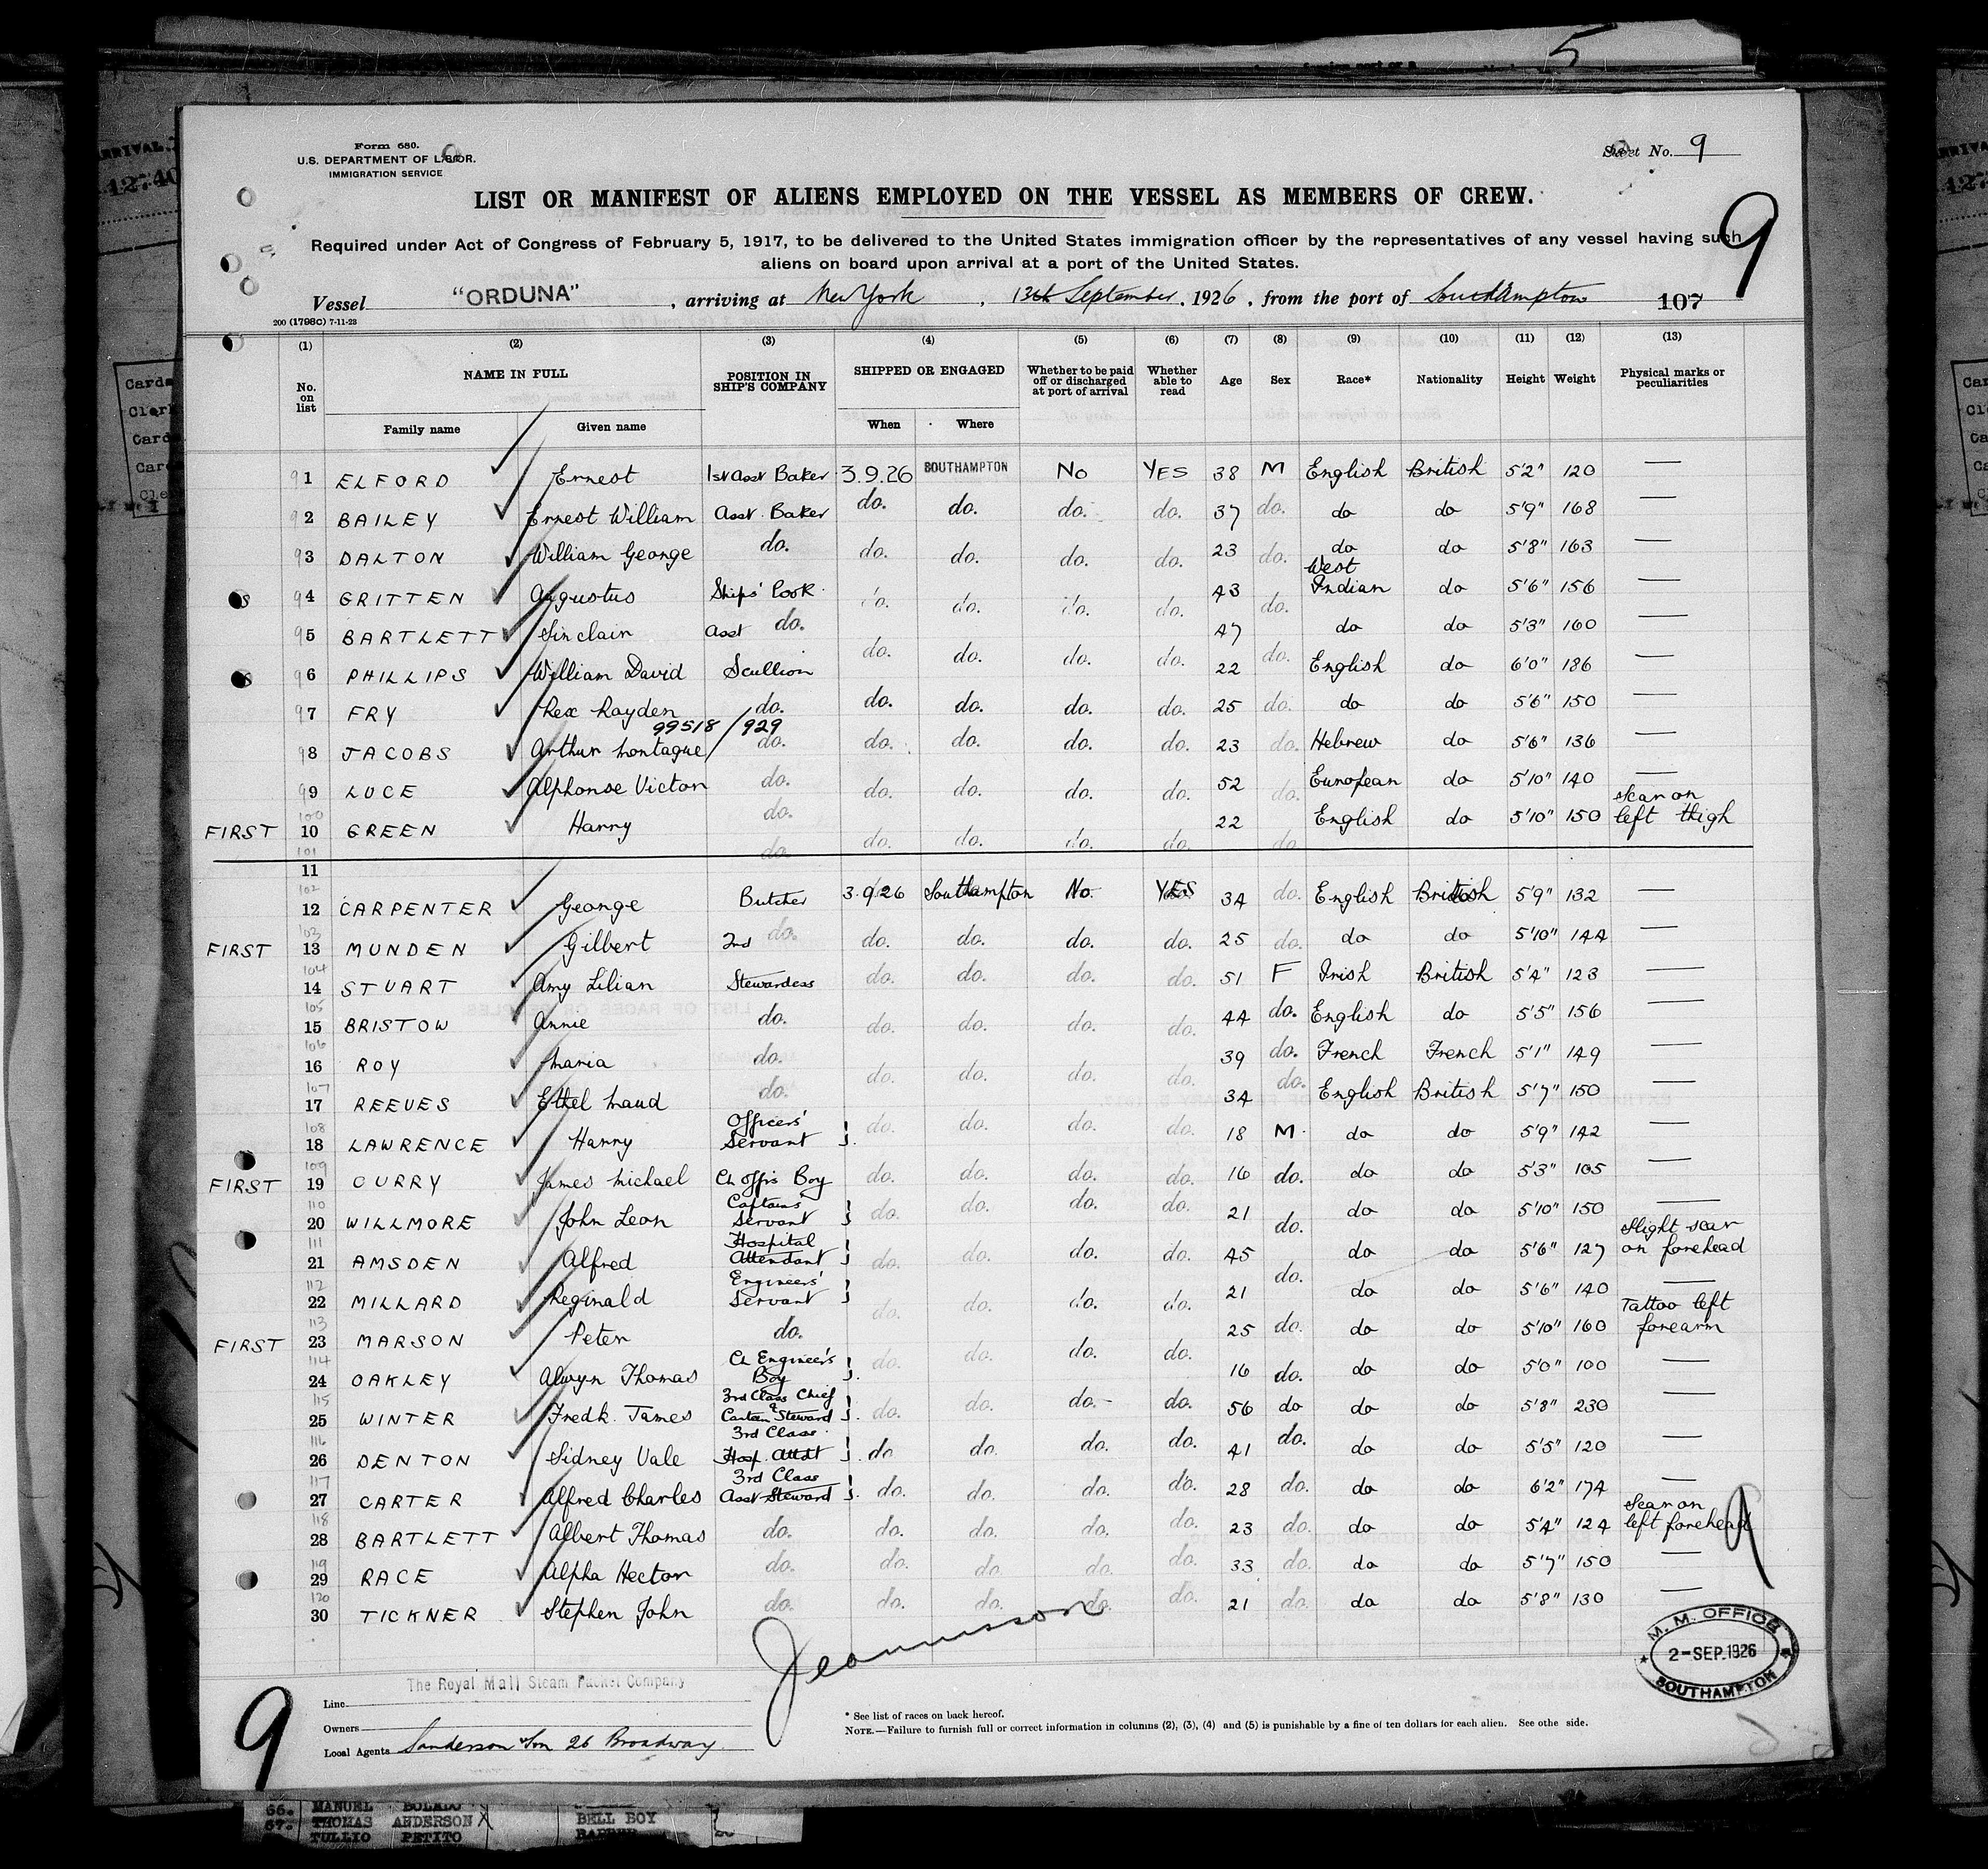 5
Form 680.
U.S. DEPARTMENT OF LABOR.
IMMIGRATION SERVICE
Sheet No. 9
LIST OR MANIFEST OF ALIENS EMPLOYED ON THE VESSEL AS MEMBERS OF CREW.
9
Required under Act of Congress of February 5, 1917, to be delivered to the United States immigration officer by the representatives of any vessel having such
aliens on board upon arrival at a port of the United States.
Vessel "ORDUNA", arriving at New York, 13th September, 1926, from the port of Southampton 107
200 (1798c) 7-11-23
(1) (2) (3) (4) (5) (6) (7) (8) (9) (10) (11) (12) (13)
No. on list NAME IN FULL POSITION IN SHIP'S COMPANY SHIPPED OR ENGAGED Whether to be paid off or discharged at port of arrival Whether able to read Age Sex Race* Nationality Height Weight Physical marks or peculiarities
Family name Given name When Where
91 1 ELFORD Ernest 1st Asst Baker 3.9.26 SOUTHAMPTON No YES 38 M English British 5'2" 120 —
92 2 BAILEY Ernest William Asst. Baker do. do. do. do. 37 do. do do 5'9" 168 —
93 3 DALTON William George do. do. do. do. do. 23 do. do do 5'8" 163 —
94 4 GRITTEN Augustus Ships' Cook do. do. do. do. 43 do. West Indian do 5'6" 156 —
95 5 BARTLETT Sinclair Asst do. do. do. do. do. 47 do. do do 5'3" 160 —
96 6 PHILLIPS William David Scullion do. do. do. do. 22 English do 6'0" 186 —
97 7 FRY Rex Rayden do. do. do. do. do. 25 do. do do 5'6" 150 —
99518/929
98 8 JACOBS Arthur Montague do. do. do. do. do. 23 do. Hebrew do 5'6" 136 —
99 9 LUCE Alphonse Victor do. do. do. do. do. 52 do. European do 5'10" 140 —
FIRST 100 10 GREEN Harry do. do. do. do. do. 22 do English do 5'10" 150 Scar on left thigh
101 11 do.
102 12 CARPENTER George Butcher 3.9.26 Southampton No. YES 34 do. English British 5'9" 132 —
FIRST 103 13 MUNDEN Gilbert 2nd do. do. do. do. do. 25 do. do do 5'10" 144 —
104 14 STUART Amy Lilian Stewardess do. do. do. do. 51 F Irish British 5'4" 123 —
105 15 BRISTOW Annie do. do. do. do. do. 44 do. English do 5'5" 156 —
106 16 ROY Maria do. do. do. do. do. 39 do. French French 5'1" 149 —
107 17 REEVES Ethel Maud do. do. do. do. do. 34 do. English British 5'7" 150 —
108 18 LAWRENCE Harry Officers' Servant do. do. do. do. 18 M. do do 5'9" 142 —
FIRST 109 19 CURRY James Michael Ch Offrs Boy do. do. do. do. 16 do. do do 5'3" 105 —
110 20 WILLMORE John Leon Captains' Servant do. do. do. do. 21 do. do do 5'10" 150 —
111 21 AMSDEN Alfred Hospital Attendant do. do. do. do. 45 do. do do 5'6" 127 Slight scar on forehead
112 22 MILLARD Reginald Engineers' Servant do. do. do. do. 21 do do 5'6" 140 —
FIRST 113 23 MARSON Peter do. do. do. do. do. 25 do. do do 5'10" 160 Tattoo left forearm
114 24 OAKLEY Alwyn Thomas Ch Engineer's Boy do. do. do. do. 16 do. do do 5'0" 100 —
115 25 WINTER Fredk. James 3rd Class Chief & Canteen Steward do. do. do. do. 56 do do do 5'8" 230 —
116 26 DENTON Sidney Vale 3rd Class Hosp. Attdt do do. do. do. 41 do. do do 5'5" 120 —
117 27 CARTER Alfred Charles 3rd Class Asst Steward do. do. do. do. 28 do. do do 6'2" 174 —
118 28 BARTLETT Albert Thomas do. do. do. do. do. 23 do. do do 5'4" 124 Scar on left forehead
119 29 RACE Alpha Hector do. do. do. do. do. 33 do. do do 5'7" 150 —
120 30 TICKNER Stephen John do. do. do. do. do. 21 do. do do 5'8" 130 —
9
M. M. OFFICE
2-SEP.1926
SOUTHAMPTON
Line The Royal Mail Steam Packet Company
Owners
Local Agents Sanderson & Son 26 Broadway.
* See list of races on back hereof.
NOTE.—Failure to furnish full or correct information in columns (2), (3), (4) and (5) is punishable by a fine of ten dollars for each alien. See othe side.
9
66. MANUEL BOLADO
67. THOMAS ANDERSON BELL BOY
TULLIO PETITO BARBER